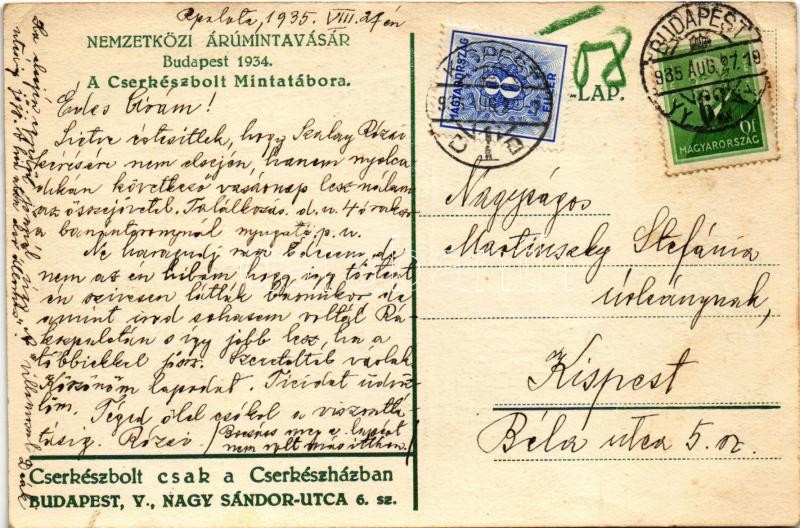 Rpalota, 1935. VIII. 27 én
NEMZETKÖZI ÁRÚMINTAVÁSÁR
Budapest 1934.
A Cserkészbolt Mintatábora.
Édes Cicám!
Sietve értesitlek, hogy Szalay Rózsi
kérésére nem elsején, hanem nyolca-
dikán következő vasárnap lesz nálam
az összejövetel. Találkozás d. u. 4 órakor
a toronynál nyugati p. u.
Ne haragudj rám Édesem, de
nem az én hibám hogy így történt
én szivesen látlak bármikor de
amint irod sohasem voltál Rá-
kospalotán s így jobb lesz, ha a
többiekkel jösz. Szeretettel várlak
Köszönöm lapodat. Ticidat üdvöz-
löm. Téged ölel csókol a viszontlá-
tásig. Rózsi (Bocsáss meg a lapért
nem volt más itthon.)
Cserkészbolt csak a Cserkészházban
BUDAPEST, V., NAGY SÁNDOR-UTCA 6. sz.
-LAP.
MAGYARORSZÁG
8
BUDAPEST
935 AUG. 27. 19
MAGYARORSZÁG
10
Nagyságos
Martinszky Stefánia
úrleánynak,
Kispest
Béla utca 5. sz.